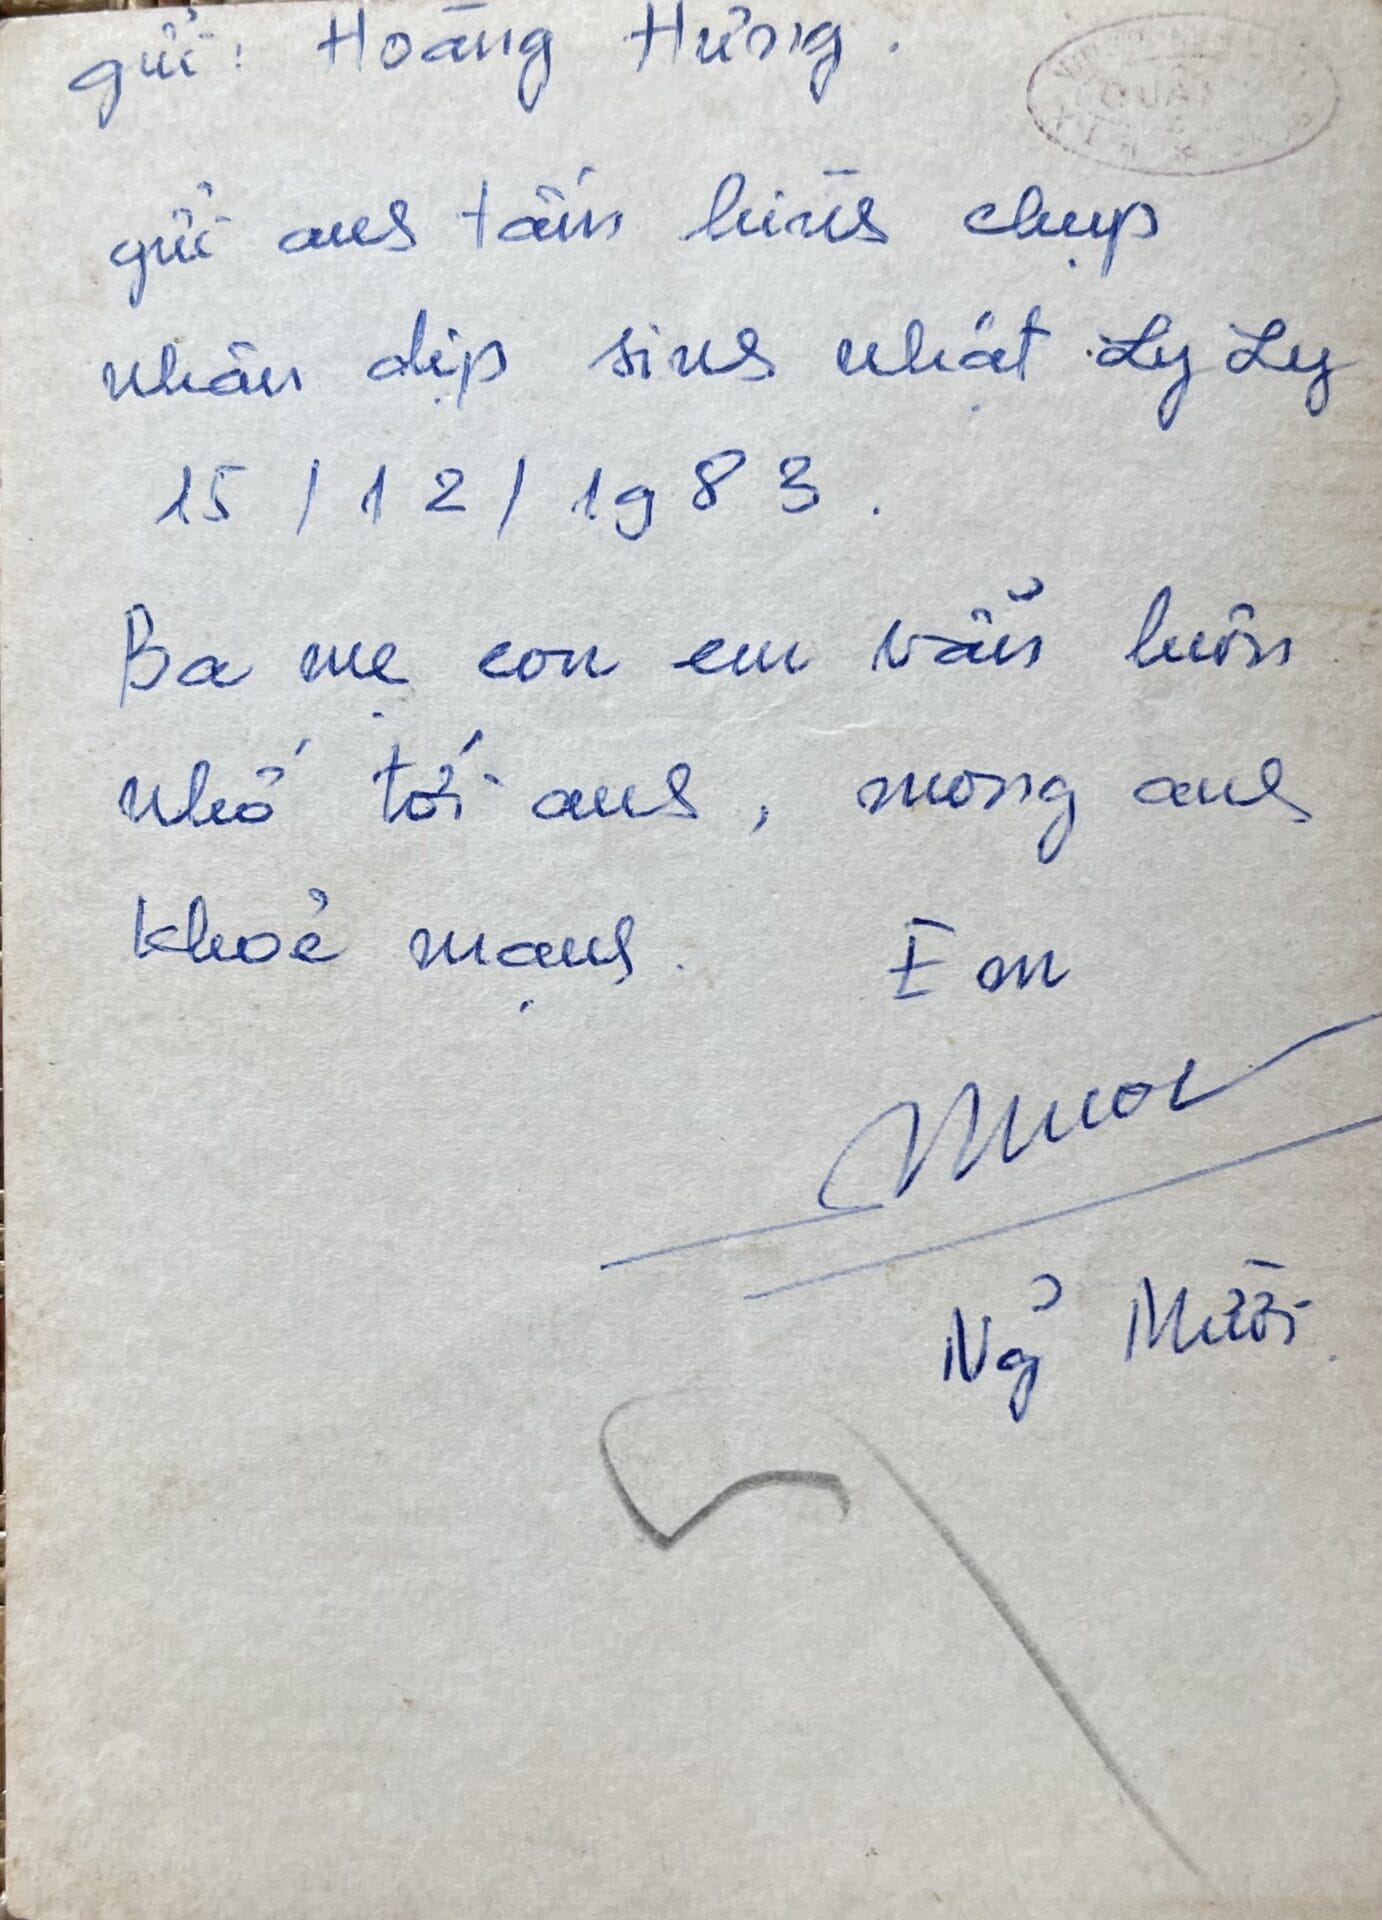 gửi: Hoàng Hưng.
gửi anh tấm hình chụp
nhân dịp sinh nhật Ly Ly
15/12/1983.
Ba mẹ con em vẫn luôn
nhớ tới anh, mong anh
khoẻ mạnh. Em
Ng̉ Mười.